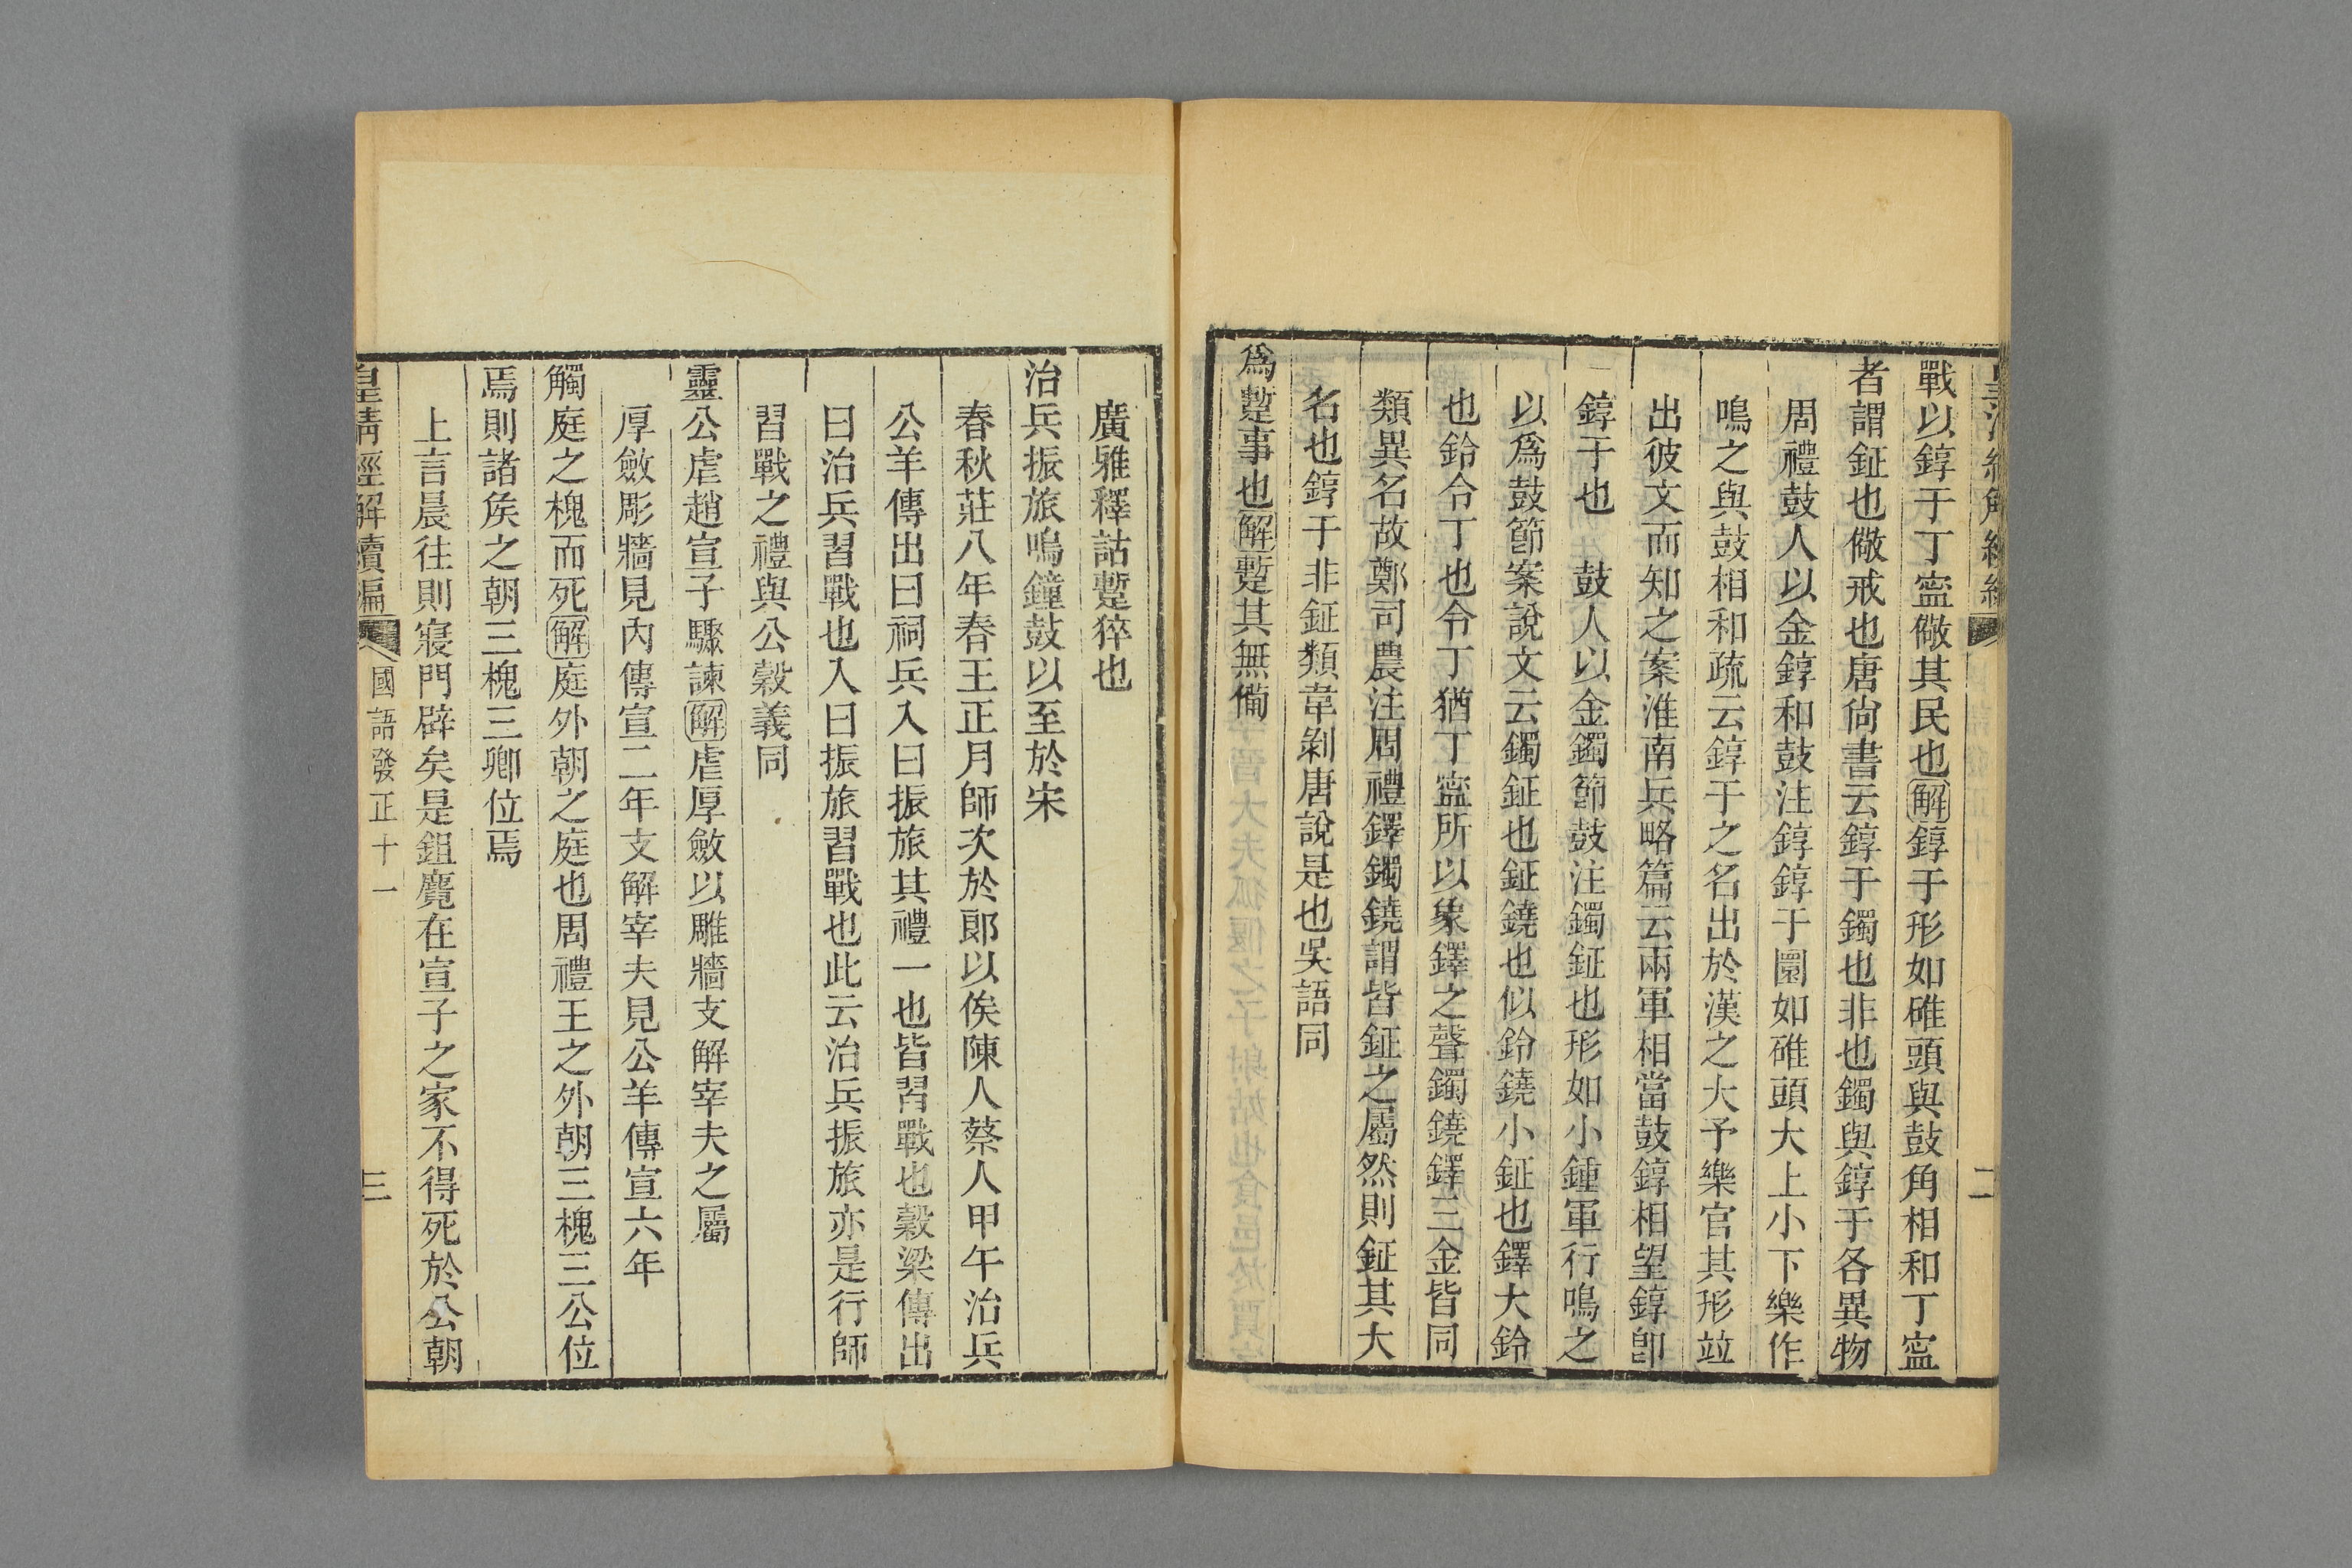 戰以錞于丁寍儆其民也解錞于形如碓頭與鼓角相和丁寍
者謂鉦也儆戒也唐尙書云錞于鐲也非也鐲與錞于各異物
周禮鼓人以金錞和鼓注錞錞于圜如碓頭大上小下樂作
鳴之與鼓相和疏云錞于之名出於漢之大予樂官其形竝
出彼文而知之案淮南兵略篇云兩軍相當鼓錞相望錞卽
錞于也 鼓人以金鐲節鼓注鐲鉦也形如小鍾軍行鳴之
以爲鼓節案說文云鐲鉦也鉦鐃也似鈴鐃小鉦也鐸大鈴
也鈴令丁也令丁猶丁寍所以象鐸之聲鐲鐃鐸三金皆同
類異名故鄭司農注周禮鐸鐲鐃謂皆鉦之屬然則鉦其大
名也錞于非鉦類韋剝唐說是也吳語同
爲蹔事也解蹔其無備
二
廣雅釋詁蹔猝也
治兵振旅鳴鐘鼓以至於宋
春秋莊八年春王正月師次於郎以俟陳人蔡人甲午治兵
公羊傳出曰祠兵入曰振旅其禮一也皆習戰也穀梁傳出
曰治兵習戰也入曰振旅習戰也此云治兵振旅亦是行師
習戰之禮與公穀義同
靈公虐趙宣子驟諫解虐厚斂以雕牆支解宰夫之屬
厚斂彫牆見內傳宣二年支解宰夫見公羊傳宣六年
觸庭之槐而死解庭外朝之庭也周禮王之外朝三槐三公位
焉則諸矦之朝三槐三卿位焉
上言晨往則寢門辟矣是鉏麑在宣子之家不得死於公朝
皇清經解續編 國語發正十一 三